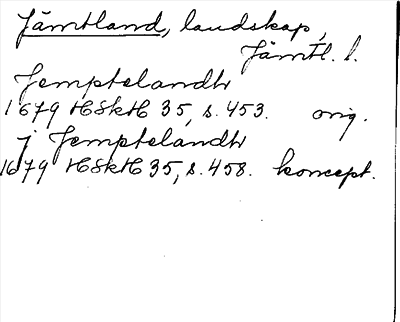 Jämtland, landskap,
Jämtl. l.
Jemptelandh
1679 HSkH 35, s. 453. orig.
j Jemptelandh
1679 HSkH 35, s. 458. koncept.